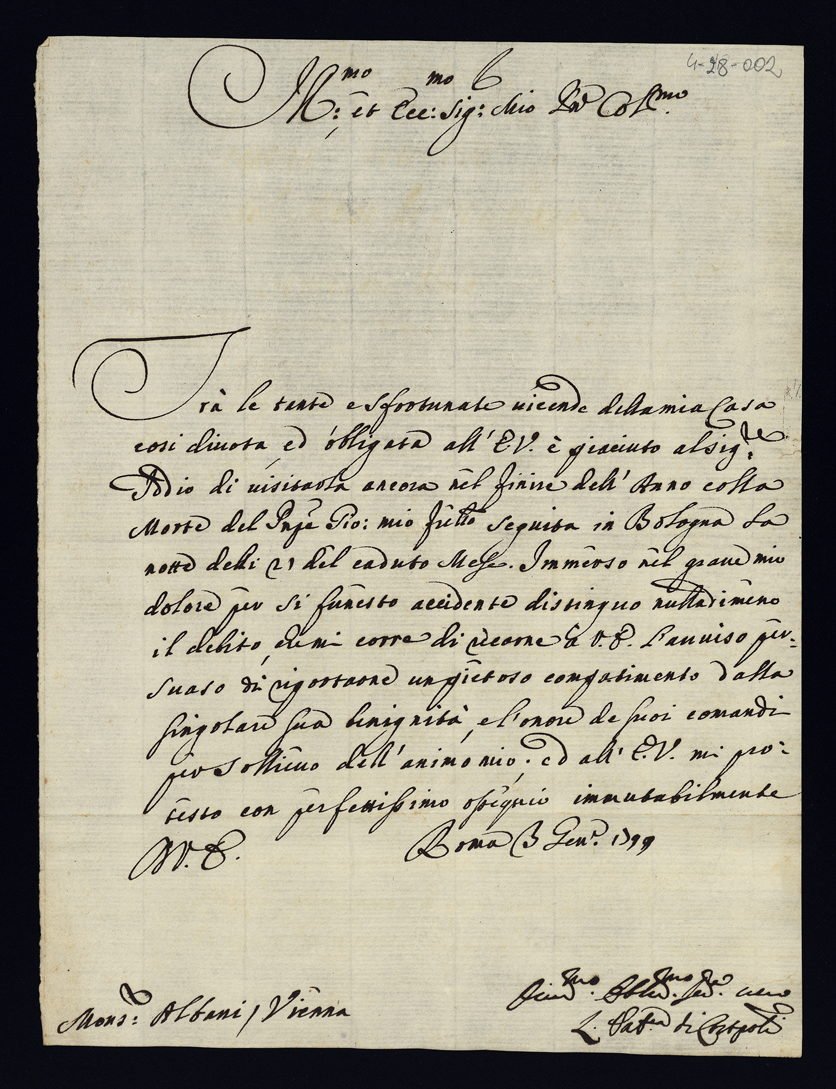 4-28-002
Ill:mo et Ecc:mo Sig:e Mio P̃ron Col:mo
Trà le tante e sfortunate vicende della mia Casa
così divota, ed obbligata all' E.V. è piaciuto al Sig:re
Iddio di visitarla ancora nel finire dell' Anno colla
Morte del Pnp̃e Gio: mio frtello seguita in Bologna la
notte delli 21 del caduto Mese. Immerso nel grave mio
dolore per si funesto accidente distinguo nulladimeno
il debito, che mi corre di recarne à V.E. l'avviso per=
suaso di riportarne un pietoso compatimento dalla
singolare sua benignità, e l'onore de suoi comandi
per sollievo dell' animo mio; ed all' E.V. mi pro=
testo con perfettissimo ossequio immutabilmente
D V.E. Roma 3 Gen:o
Mons:e Albani / Vienna
Div:mo Obblig:mo Ser:e vero
L. Pat:ca di Costpoli